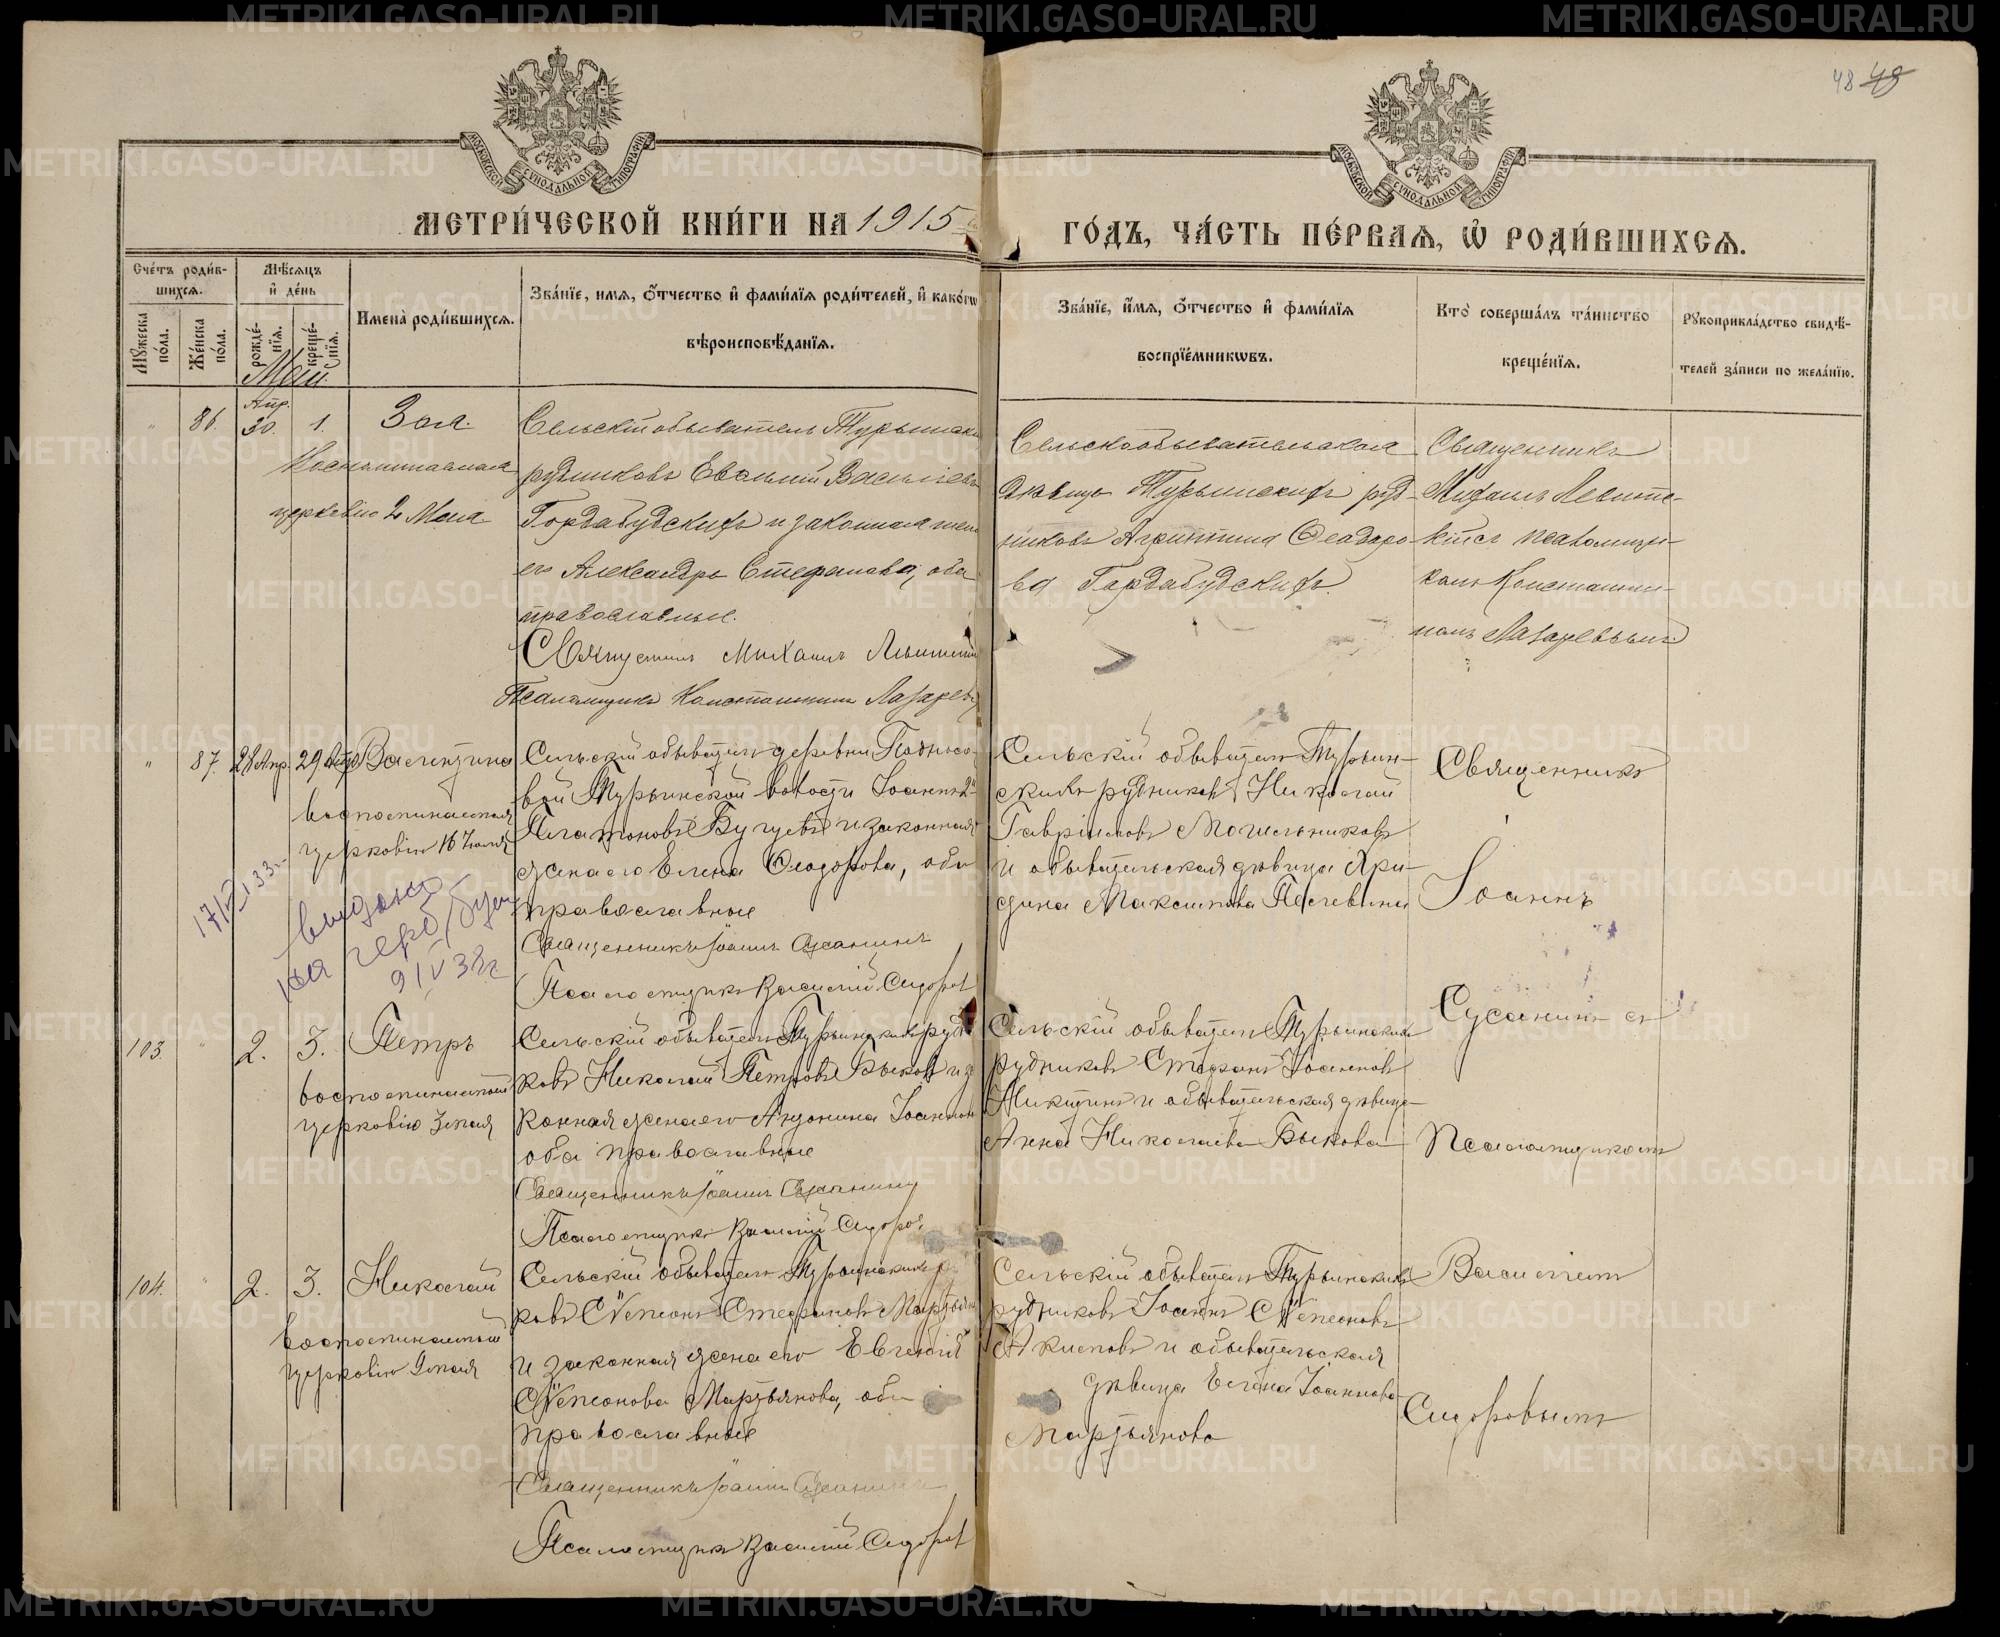 48 49
МОСКОВСКОЙ СУНОДАЛЬНОЙ ТИПОГРАФІИ
МОСКОВСКОЙ СУНОДАЛЬНОЙ ТИПОГРАФІИ
МЕТРИ́ЧЕСКОЙ КНИ́ГИ НА 1915
ГО́ДЪ, ЧА́СТЬ ПЕ́РВАЯ, Ѡ҆ РОДИ́ВШИХСЯ.
Сче́тъ роди́вшихся.
Мꙋжеска по́ла.
Же́нска по́ла.
Мѣ́сяцъ и҆ де́нь
рожде́нїя.
креще́нїя.
Май.
Имена̀ роди́вшихся.
Зва́нїе, имя, ѻ҆́тчество и҆ фами́лїя роди́телей, и҆ како́гѡ
вѣроисповѣ́данїя.
Зва́нїе, и҆́мя, ѻ҆́тчество и҆ фами́лїя
воспрїе́мникѡвъ.
Кто̀ соверша́лъ та́инство
креще́нїя.
Рꙋкоприкла́дство свидѣ́-
телей за́писи по жела́нїю.
" 86. Апр. 30. 1. Зоя.
Воспоминаемая
церковію 2 Мая
Сельскій обыватель Турьинск
рудниковъ Евгеній Васильевъ
Гордабудскихъ и законная жен
его Александра Стефанова, оба
православные.
Священникъ Михаилъ
Псаломщикъ Константинъ Лазарев
Сельскообывательская
дѣвица Турьинскихъ руд-
никовъ Агриппина Ѳеодоро-
ва Гордабудскихъ.
Священникъ
Михаилъ Левитс-
кій съ псаломщи-
комъ Константи-
номъ Лазаревымъ
" 87. 28 Апр. 29 Апр Валентина
воспоминаемая
церковію 16 Іюля
17/V 33 г.
выдано
на герб. бум
9/V 38 г
Сельскій обыватель деревни
вой Турьинской волости Іоаннъ
Платоновъ Бугуевъ и законная
жена его Елена Ѳеодорова, оба
православные
Священникъ Іоаннъ Сусанинъ
Псаломщикъ Василій Сидоров
Сельскій обыватель Турьин-
скихъ рудниковъ Николай
Гавріиловъ Мошельниковъ
и обывательская дѣвица Ари-
дина Максимова
Священникъ
Іоаннъ
Сусанинъ съ
Псаломщикомъ
Василіемъ
Сидоровымъ
103. " 2. 3. Петръ
воспоминаемый
церковію 3 мая
Сельскій обыватель Турьинскихъ рудн
ковъ Николай Петровъ Быковъ и за
конная жена его Антонина Іоаннов
оба православные
Священникъ Іоаннъ Сусанинъ
Псаломщикъ Василій Сидоров
Сельскій обыватель Турьинскихъ
рудниковъ Стефанъ Іоанновъ
Никитинъ и обывательская дѣвица
Анна Николаева Быкова
104. " 2. 3. Николай
воспоминаемый
церковію 9 мая
Сельскій обыватель Турьинскихъ р
ковъ Сѵмеонъ Стефановъ Мартьян
и законная жена его Евгенія
Сѵмеонова Мартьянова, оба
православные
Священникъ Іоаннъ Сусанинъ
Псаломщикъ Василій Сидоров
Сельскій обыватель Турьинскихъ
рудниковъ Іоаннъ Сѵмеоновъ
Акимовъ и обывательская
дѣвица Елена Іоаннова
Мартьянова
METRIKI.GASO-URAL.RU